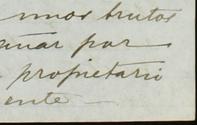 unos brutos
añar por
propietario
ente —